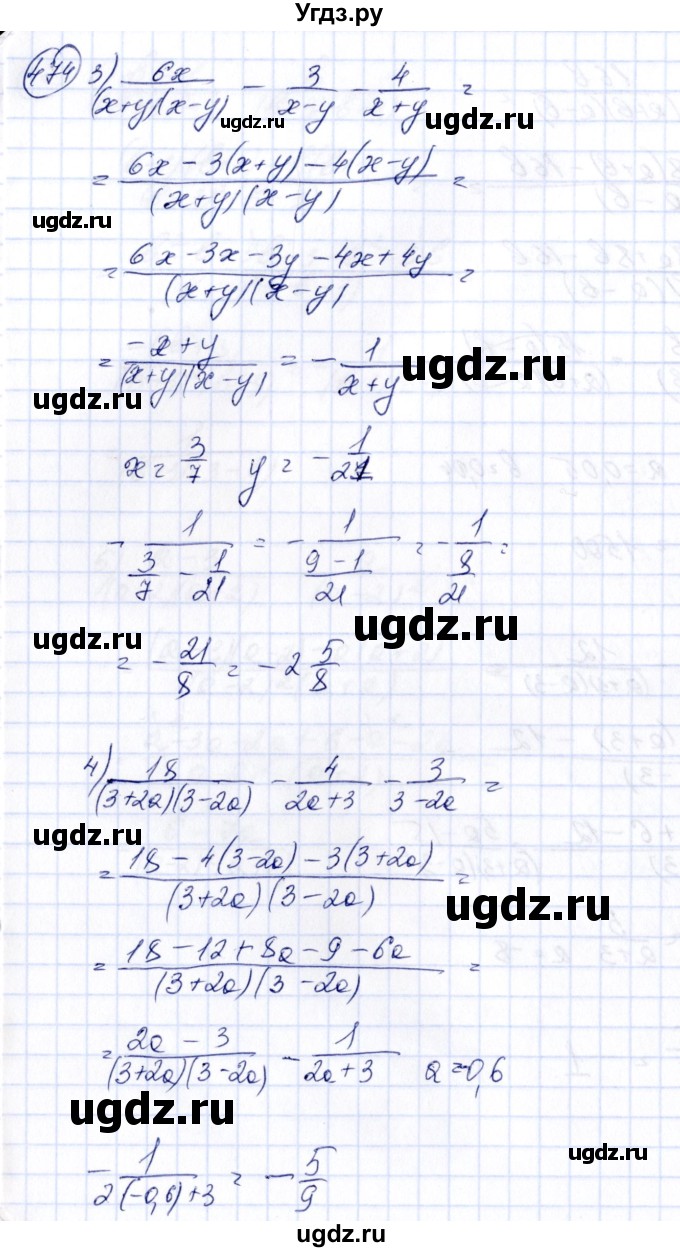 Угдз.ру
474 3) 6x/((x+y)(x-y)) - 3/(x-y) - 4/(x+y) =
ugdz.ru ugdz.ru
= (6x - 3(x+y) - 4(x-y))/((x+y)(x-y)) =
ugdz.ru
= (6x - 3x - 3y - 4x + 4y)/((x+y)(x-y)) =
ugdz.ru
= (-x + y)/((x+y)(x-y)) = - 1/(x+y)
ugdz.ru ugdz.ru
x = 3/7 y = - 1/21
- 1/(3/7 - 1/21) = - 1/((9-1)/21) = - 1/(8/21) =
ugdz.ru ugdz.ru
= - 21/8 = - 2 5/8
4) 18/((3+2a)(3-2a)) - 4/(2a+3) - 3/(3-2a) =
= (18 - 4(3-2a) - 3(3+2a))/((3+2a)(3-2a)) =
ugdz.ru
= (18 - 12 + 8a - 9 - 6a)/((3+2a)(3-2a)) =
= (2a - 3)/((3+2a)(3-2a)) - 1/(2a+3) a = 0,6
ugdz.ru
- 1/(2(-0,6)+3) = - 5/9
ugdz.ru
ugdz.ru
ugdz.ru